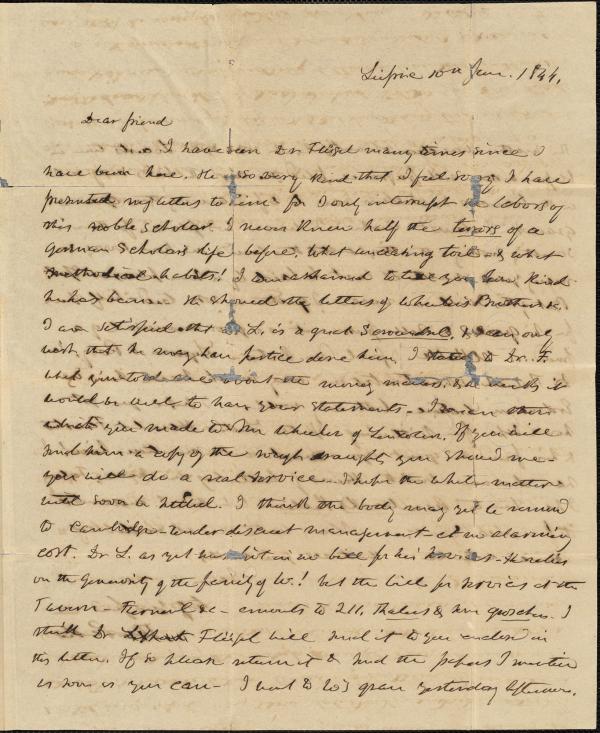 Leipsic 10th Jan. 1844.
Dear friend
I have seen Dr Flügel many times since I
have been here. He is so very kind that I feel sorry I have
presented my letters to him for I only interrupt the labors of
this noble scholar. I never knew half the terrors of a
German Scholars life before. What unceasing toil & what
methodical habits! I am ashamed to tell you how kind
he has been. He showed the letters of Wheeler's Brother &c.
I am satisfied that Dr L. is a great Scoundrel, & can only
wish that he may have justice done him. I stated to Dr. F.
what you told me about the money matters, & he thinks it
would be well to have your statements - I mean those
which you made to Mr Wheeler of Lincoln. If you will
send him a copy of the rough draught you showed me -
you will do a real service. I hope the whole matter
will soon be settled. I think the body may yet be removed
to Cambridge - under discreet management - at no alarming
cost. Dr L. as yet has put in no bill for his services - He relies
on the generosity of the family of W.! but the bill for services at the
Tavern - Funeral &c - amounts to 211. Thalers & some groschen. I
think Dr Flügel will send it to you enclosed in
this letter. If so please return it & send the papers I mention
as soon as you can - I went to W's grave yesterday afternoon.